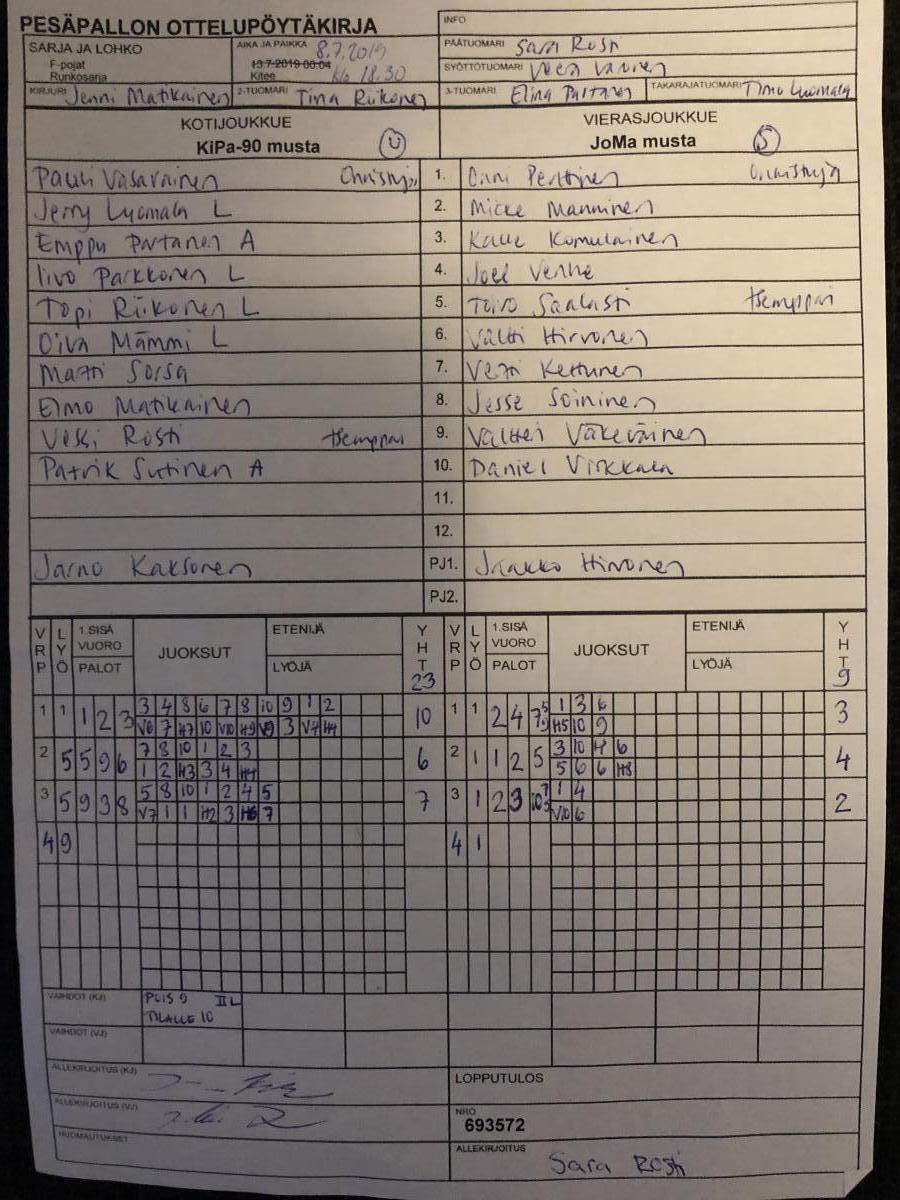 PESÄPALLON OTTELUPÖYTÄKIRJA
INFO
SARJA JA LOHKO
F-pojat
Runkosarja
AIKA JA PAIKKA 8.7.2019
13.7.2019 00:04
Kitee klo 18.30
PÄÄTUOMARI Sara Rosti
SYÖTTÖTUOMARI
KIRJURI Jenni Matikainen
2-TUOMARI Tiina Riikonen
3-TUOMARI Elina Partanen
TAKARAJATUOMARI Timo Luomala
KOTIJOUKKUE
KiPa-90 musta U
VIERASJOUKKUE
JoMa musta S
Pauli Vasarainen Onnistuja 1. Onni Penttinen Onnistuja
Jerry Luomala L 2. Micke Manninen
Emppu Partanen A 3. Kalle Komulainen
Iivo Parkkonen L 4. Joel Venhe
Topi Riikonen L 5. Toivo Saalasti tsemppari
Oiva Mämmi L 6. Valtti Hirvonen
Matti Sorsa 7. Veeti Kettunen
Elmo Matikainen 8. Jesse Soininen
Veski Rosti tsemppari 9. Valtteri Väkeväinen
Patrik Sutinen A 10. Daniel Virkkala
11.
12.
Jarno Kaksonen PJ1. Jaakko Hirvonen
PJ2.
VRP LYÖ 1.SISÄ VUORO PALOT JUOKSUT ETENIJÄ LYÖJÄ YHT 23
VRP LYÖ 1.SISÄ VUORO PALOT JUOKSUT ETENIJÄ LYÖJÄ YHT 9
1 1 1 2 3 3 4 8 6 7 8 10 9 1 2 10
V6 7 H7 10 V10 H9 V9 3 V4 H4
1 1 2 4 7 5 9 1 3 6 3
H5 10 9
2 5 5 9 6 7 8 10 1 2 3 6
1 2 H3 3 4 H4
2 1 1 2 5 3 10 4 6 4
5 6 6 H8
3 5 9 3 8 5 8 10 1 2 4 5 7
V7 1 1 H2 3 H6 7
3 1 2 3 10 1 4 2
V10 6
4 9
4 1
VAIHDOT (KJ) POIS 9 II L
TILALLE 10
VAIHDOT (VJ)
ALLEKIRJOITUS (KJ)
LOPPUTULOS
ALLEKIRJOITUS (VJ)
NRO
693572
HUOMAUTUKSET
ALLEKIRJOITUS Sara Rosti